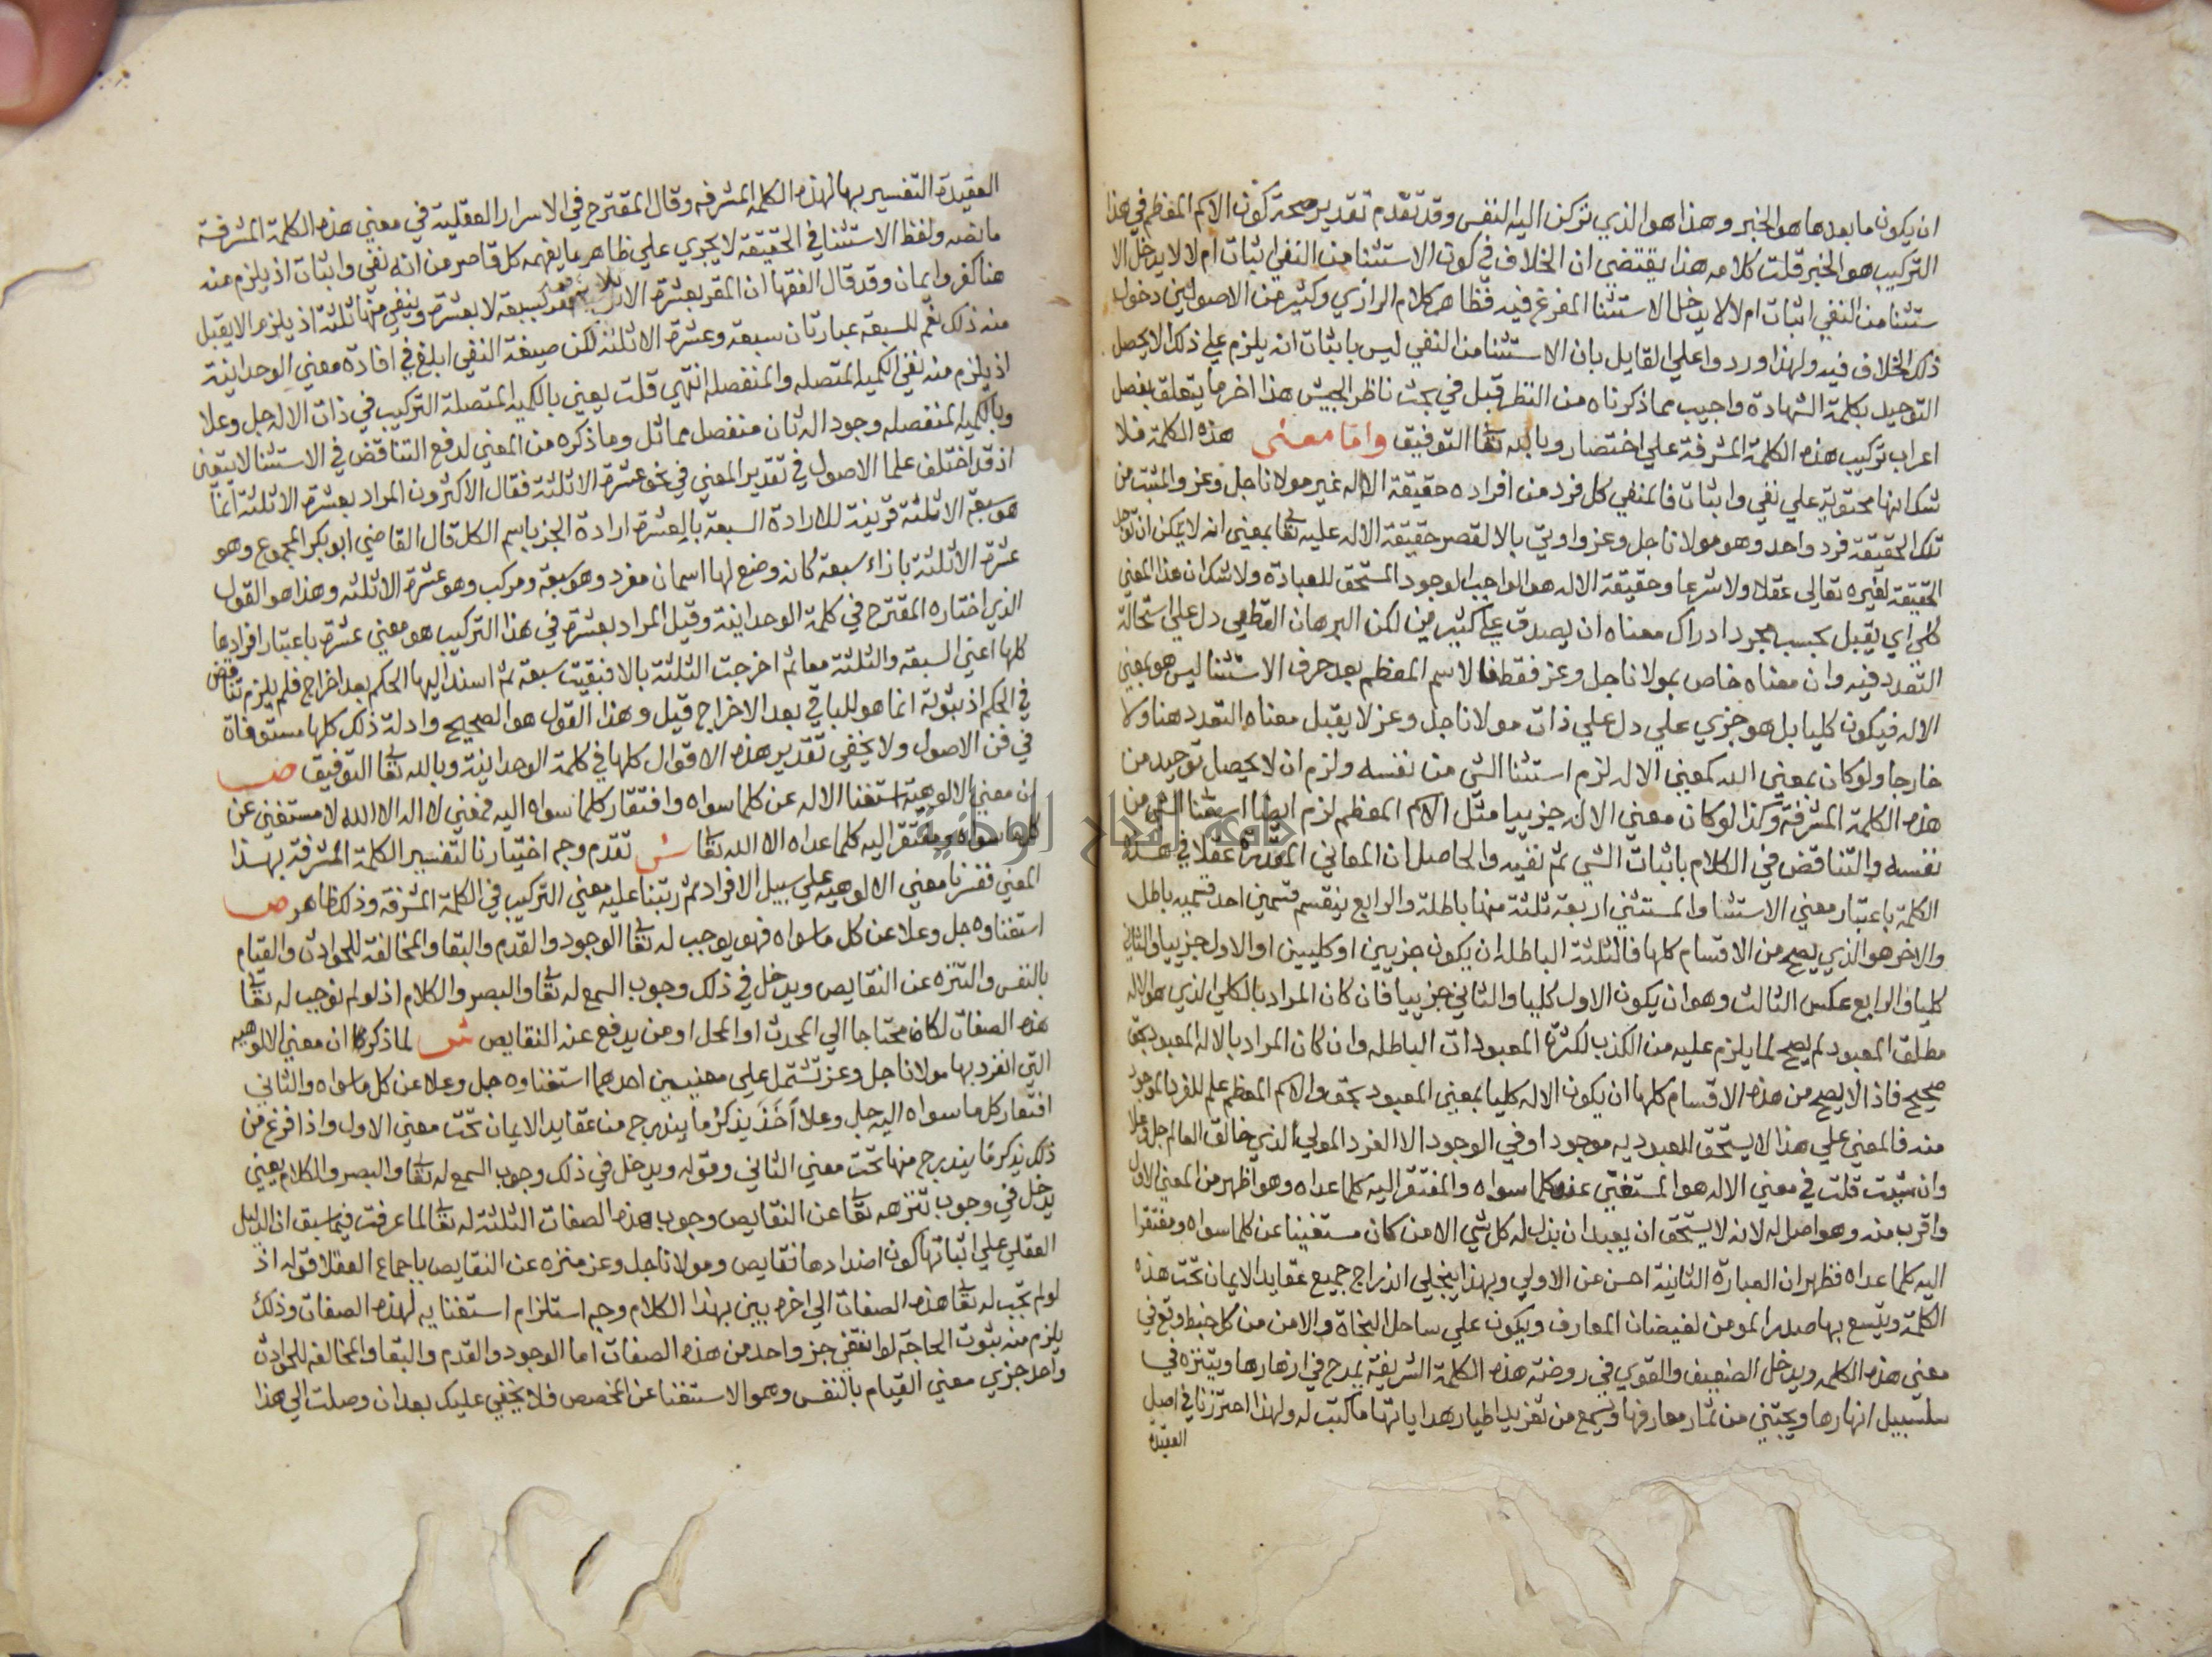 ان يكون ما بعدها هو الخبر وهذا هو الذي تركن اليه النفس وقد تقدم تقدير صحة كون الاسم المعظم في هذا
التركيب هو الخبر قلت كلامه هذا يقتضي ان الخلاف في كون الاستثنا من النفي اثبات ام لا لا يدخل الا
ستثنا من النفي اثبات ام لا لا يدخل الاستثنا المفرغ فيه فظاهر كلام الرازي وكثير من الاصوليين دخول
ذلك الخلاف فيه ولهذا وردوا علي القايل بان الاستثنا من النفي ليس باثبات انه يلزم علي ذلك الا يحصل
التوحيد بكلمة الشهادة واجيب مما ذكرناه من النظر قبل في بحث ناظر الجيش هذا اخر ما يتعلق بفصل
اعراب تركيب هذه الكلمة المشرفة علي اختصار وبالله تعا التوفيق واما معنى هذه الكلمة فلا
شك انها محتوية علي نفي واثبات فالمنفي كل فرد من افراده حقيقة الاله غير مولانا جل وعز والمثبت من
تلك الحقيقة فرد واحد وهو مولانا جل وعز واوتي بالا لقصر حقيقة الاله عليه تعا بمعني انه لا يمكن ان توجد
الحقيقة لغيره تعالي عقلا ولا شرعا وحقيقة الاله هو الواجب الوجود المستحق للعبادة ولا شك ان هذا المعني
كلي اي يقبل بحسب مجرد ادراك معناه ان يصدق علي كثيرين لكن البرهان القطعي دل علي استحالة
التعدد فيه وان معناه خاص بمولانا جل وعز فقط فالاسم المعظم بعد حرف الاستثنا ليس هو بمعني
الاله فيكون كليا بل هو جزي علي دل علي ذات مولانا جل وعز لا يقبل معناه التعدد هنا ولا
خارجا ولو كان بمعني الله كمعني الاله لزم استثنا الشي من نفسه ولزم ان لا يحصل توحيد من
هذه الكلمة المشرفة وكذا لو كان معني الاله جزييا مثل الاسم المعظم لزم ايضا استثنا الشي من
نفسه والتناقض في الكلام باثبات الشي ثم نفيه والحاصل ان المعاني المقدرة عقلا في هذه
الكلمة باعتبار معني الاستثنا والمستثني اربعة ثلثة منها باطلة والرابع ينقسم قسمين احد قسميه باطل
والاخر هو الذي يصح من الاقسام كلها فالثلثة الباطلة ان يكون جزيين او كليين او الاول جزييا والثاني
كليا والرابع عكس الثالث وهو ان يكون الاول كليا والثاني جزييا فان كان المراد بالكلي الذي هو الاله
مطلق المعبود لم يصح لما يلزم عليه من الكذب لكثرة المعبودات الباطله وان كان المراد بالاله المعبود بحق
صحيح فاذا لا يصح من هذه الاقسام كلها ان يكون الاله كليا بمعني المعبود بحق والاسم المعظم علم للفرد الموجود
منه فالمعني علي هذا لا يستحق العبوديه موجود او في الوجود الا الفرد المولي الذي خالق العالم جل وعلا
وان شيت قلت في معني الاله هو المستغني عن كلما سواه والمفتقر اليه كلما عداه وهو اظهر من المعني الاول
واقرب منه وهو اصل له لانه لا يستحق ان يعبد ان يذل له كل شي الا من كان مستغنيا عن كلما سواه ومفتقرا
اليه كلما عداه فظهر ان العبارة الثانية احسن من الاولي وبهذا ينجلي اندراج جميع عقايد الايمان تحت هذه
الكلمة ويتسع بها صدر المومن لفيضان المعارف ويكون علي ساحل النجاة والامن من كل خبط وقع في
معني هذه الكلمه ويدخل الضعيف والقوي في روضة هذه الكلمة الشريفة يمرح في ازهارها ويتنزه في
سلسبيل انهارها ويجتني من ثمار معارفها ويسمع من تغريد اطيار هداياتها ما كتب له ولهذا احترزنا في اصل
العقيدة
العقيدة التفسير بها لهذه الكلمه المشرفه وقال المقترح في الاسرار العقلية في معني هذه الكلمة المشرفة
ما نصه ولفظ الاستثنا في الحقيقة لا يجري علي ظاهر ما يفهمه كل قاصر من انه نفي واثبات اذ يلزم منه
هنا كفر وايمان وقد قال الفقها ان المقر بعشرة الا ثلاثة مقر بسبعة لا بعشرة وينفي منها ثلثة اذ يلزم الا يقبل
منه ذلك نعم للسبعة عبارتان سبعة وعشرة الا ثلثة لكن صيغة النفي ابلغ في افادة معني الوحدانية
اذ يلزم منه نفي الكميه المتصله والمنفصله انتهي قلت يعني بالكميه المتصلة التركيب في ذات الاله جل وعلا
وبالكميه المنفصله وجود اله ثان منفصل مماثل وما ذكره من المعني لدفع التناقض في الاستثنا لا يتعين
اذ قد اختلف علما الاصول في تقدير المعني في نحو عشرة الا ثلثة فقال الاكثرون المراد بعشرة الا ثلثة انما
هو سبعة الا ثلثة قرينة للارادة السبعة بالعشرة ارادة الجز باسم الكل قال القاضي ابو بكر المجموع وهو
عشرة الا ثلثة بازاء سبعة كانه وضع لها اسمان مفرد وهو سبعة ومركب وهو عشرة الا ثلثه وهذا هو القول
الذي اختاره المقترح في كلمة الوحدانية وقيل المراد بعشرة في هذا التركيب هو معني عشرة باعتبار افرادها
كلها اعني السبعه والثلثة معا ثم اخرجت الثلثة بالا فبقيت سبعة ثم اسند اليها الحكم بعد اخراج فلم يلزم تناقض
في الحكم اذ ثبوته انما هو للباقي بعد الاخراج قيل وهذا القول هو الصحيح وادلة ذلك كلها مستوفاة
في فن الاصول ولا يخفي تقدير هذه الاقوال كلها في كلمة الوحدانية وبالله تعا التوفيق ص
ان معني الالوهية استغنا الاله عن كلما سواه وافتقار كلما سواه اليه فمعني لا اله الا الله لا مستغني عن
كلما سواه ومفتقرا اليه كلما عداه الا الله تعا ش تقدم وجه اختيارنا لتفسير الكلمة المشرفة بهذا
المعني ففسرنا معني الالوهيه علي سبيل الافراد ثم رتبنا عليه معني التركيب في الكلمة المشرفة وذلك ظاهر ص
استغناوه جل وعلا عن كل ما سواه فهو يوجب له تعا الوجود والقدم والبقا والمخالفة للحوادث والقيام
بالنفس والتنزه عن النقايص ويدخل في ذلك وجوب السمع له تعا والبصر والكلام اذ لو لم توجب له تعا
هذه الصفات لكان محتاجا الي المحدث او المحل او من يدفع عنه النقايص ش لما ذكر ان معني الالوهيه
التي انفرد بها مولانا جل وعز تشتمل علي معنيين احدهما استغناوه جل وعلا عن كل ما سواه والثاني
افتقار كل ما سواه اليه جل وعلا اَخَذَ يذكرُ ما يندرج من عقايد الايمان تحت معني الاول واذا فرغ من
ذلك يذكر ما يندرج منها تحت معني الثاني وقوله ويدخل في ذلك وجوب السمع له تعا والبصر والكلام يعني
يدخل في وجوب تنزهه تعا عن النقايص وجوب هذه الصفات الثلثة له تعا لما عرفت فيما سبق ان الدليل
العقلي علي اثباتها كون اضدادها نقايص ومولانا جل وعز منزه عن النقايص باجماع العقلا قوله اذ
لو لم تجب له تعا هذه الصفات الي اخره بين بهذا الكلام وجه استلزام استغنايه لهذه الصفات وذلك
يلزم منه ثبوت الحاجة لو انتفي جز واحد من هذه الصفات اما الوجود والقدم والبقا والمخالفه للحوادث
واحد جزي معني القيام بالنفس وهو الاستغنا عن المخصص فلا يخفي عليك بعد ان وصلت الي هذا
جامعة النجاح الوطنية